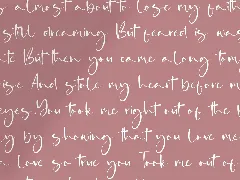 s almost about to lose my faith
still dreaming But feared is was
ate But then you came along tom
ise And stole my heart before m
eyes. You took me right out of the m
y by showing that you love me
n. Love so true you Took me out of